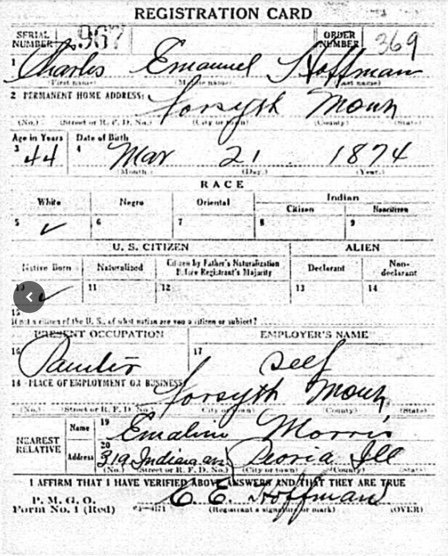 REGISTRATION CARD
SERIAL NUMBER 967 ORDER NUMBER 369
1 Charles Emanuel Hoffman
(First name) (Middle name) (Last name)
2 PERMANENT HOME ADDRESS:
Forsyth Mont
(No.) (Street or R. F. D. No.) (City or town) (County) (State)
Age in Years Date of Birth
3 44 4 Mar 21 1874
(Month.) (Day.) (Year.)
RACE
White Negro Oriental Indian
Citizen Noncitizen
5 ✓ 6 7 8 9
U. S. CITIZEN ALIEN
Native Born Naturalized Citizen by Father's Naturalization Before Registrant's Majority Declarant Non-declarant
10 ✓ 11 12 13 14
15
If not a citizen of the U. S., of what nation are you a citizen or subject?
PRESENT OCCUPATION EMPLOYER'S NAME
16 Painter 17 Self
18 PLACE OF EMPLOYMENT OR BUSINESS:
Forsyth Mont
(No.) (Street or R. F. D. No.) (City or town) (County) (State)
NEAREST RELATIVE Name 19 Emaline Morris
Address 20 319 Indiana av Peoria Ill
(No.) (Street or R. F. D. No.) (City or town) (County) (State)
I AFFIRM THAT I HAVE VERIFIED ABOVE ANSWERS AND THAT THEY ARE TRUE
P. M. G. O.
Form No. 1 (Red) C. E. Hoffman
(Registrant's signature or mark) (OVER)